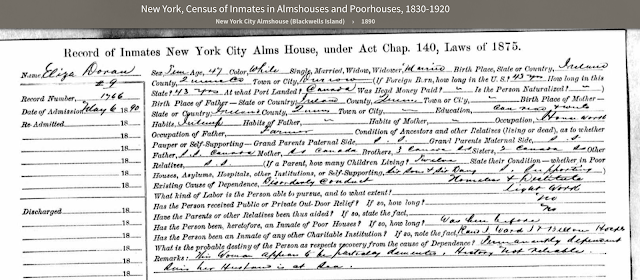 New York, Census of Inmates in Almshouses and Poorhouses, 1830-1920
New York City Almshouse (Blackwells Island) › 1890
Record of Inmates New York City Alms House, under Act Chap. 140, Laws of 1875.
Name, Eliza Doran Sex, Fem Age, 47 Color, White Single, Married, Widow, Widower, Married Birth Place, State or Country, Ireland
County, Town or City, (If Foreign Born, how long in the U.S.? 43 yrs How long in this
Record Number, 1766 State? 43 yrs At what Port Landed? Canada Was Head Money Paid? " Is the Person Naturalized? "
Date of Admission, May 6 1890 Birth Place of Father—State or Country, Ireland County, Town or City, " Birth Place of Mother—
State or Country, Ireland County, Town or City, Education, Can read
Re-Admitted 18 Habits, Habits of Father, " Habits of Mother, " Occupation, House Work
18 Occupation of Father, Farmer Condition of Ancestors and other Relatives (living or dead), as to whether
18 Pauper or Self-Supporting—Grand Parents Paternal Side, S. S. Grand Parents Maternal Side, S. S.
18 Father, S. S. Canada Mother, Canada Brothers, 3 Canada Sisters, 2 Canada Other
18 Relatives, S. S. (If a Parent, how many Children Living? Twelve State their Condition—whether in Poor
18 Houses, Asylums, Hospitals, other Institutions, or Self-Supporting, Six Sons & Six Daus S. Supporting
18 Existing Cause of Dependence, Disorderly Conduct Homeless & Destitute
What kind of Labor is the Person able to pursue, and to what extent? Light Work
18 Has the Person Received Public or Private Out-Door Relief? If so, how long? No
Discharged 18 Have the Parents or other Relatives been thus aided? If so, state the fact, No
18 Has the Person been, heretofore, an Inmate of Poor House? If so, how long? Was here before
18 Has the Person been an Inmate of any other Charitable Institution? If so, note the fact, Ward's & Bellevue Hosps
18 What is the probable destiny of the Person as respects recovery from the cause of Dependence? Permanently dependent
18 Remarks: This Woman appears to be partialy demented, History not reliable
18 her Husband is at Sea